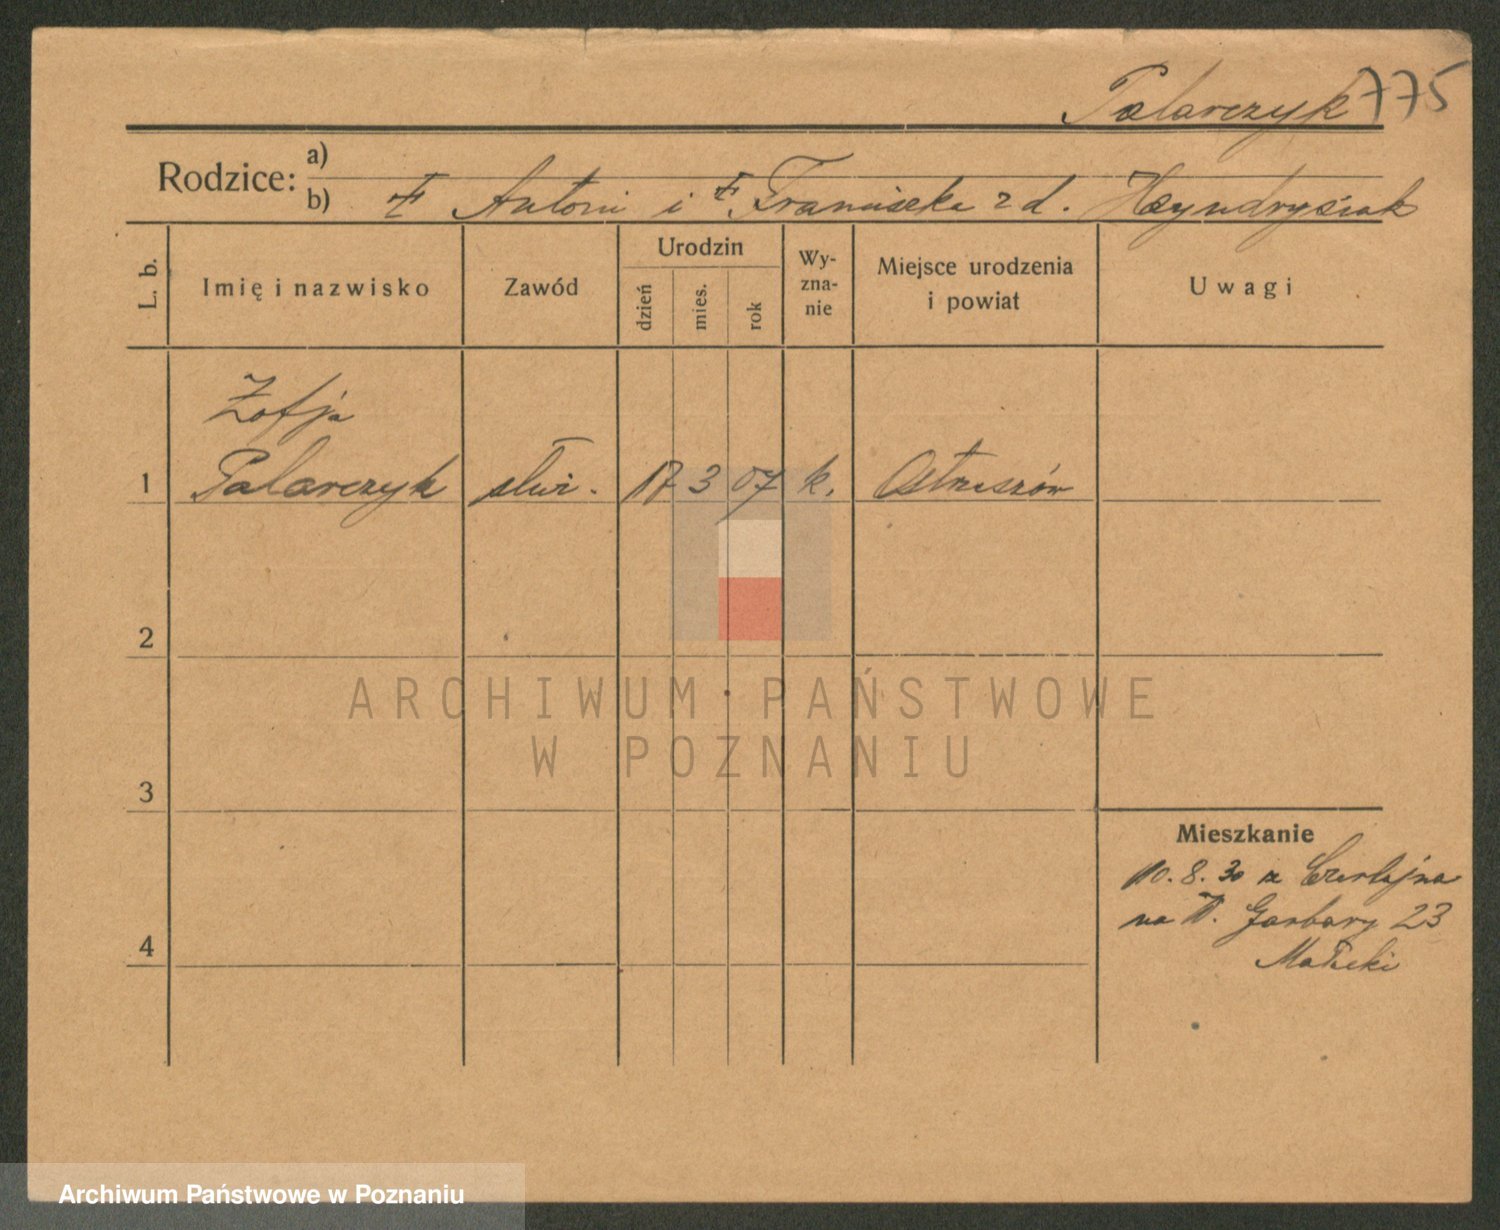 Palarczyk 775
Rodzice: a)
b) Antoni i Franciszka z d. Heyndrysiak
L. b.
Imię i nazwisko
Zawód
Urodzin
dzień
mies.
rok
Wy-
zna-
nie
Miejsce urodzenia
i powiat
Uwagi
Zofja
1 Palarczyk służ. 17 3 07 k. Ostrzeszów
2
ARCHIWUM PAŃSTWOWE
W POZNANIU
3
Mieszkanie
10.8.30 z
na W. Garbary 23
4
Archiwum Państwowe w Poznaniu